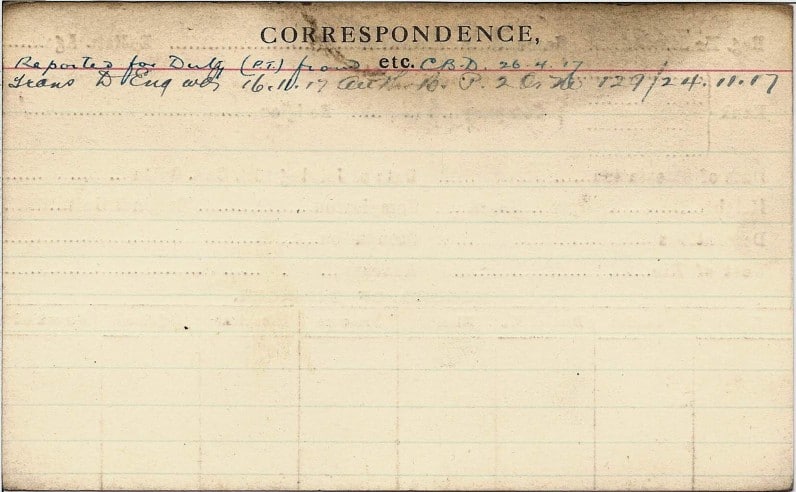 CORRESPONDENCE,
etc.
Reported for Duty (P.T.) from C.B.D. 26.4.17
Trans D Eng 16.11.17 P. 2 O. No 129/24.11.17